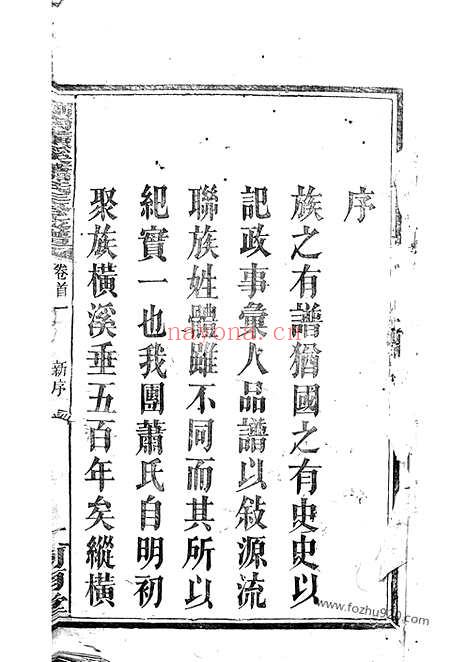 序
族之有譜猶國之有史史以
記政事彙人品譜以敍源流
聯族姓體雖不同而其所以
紀實一也我團蕭氏自明初
聚族橫溪垂五百年矣縱橫
卷首
新序
nayona.cn
www.fozhu920.com